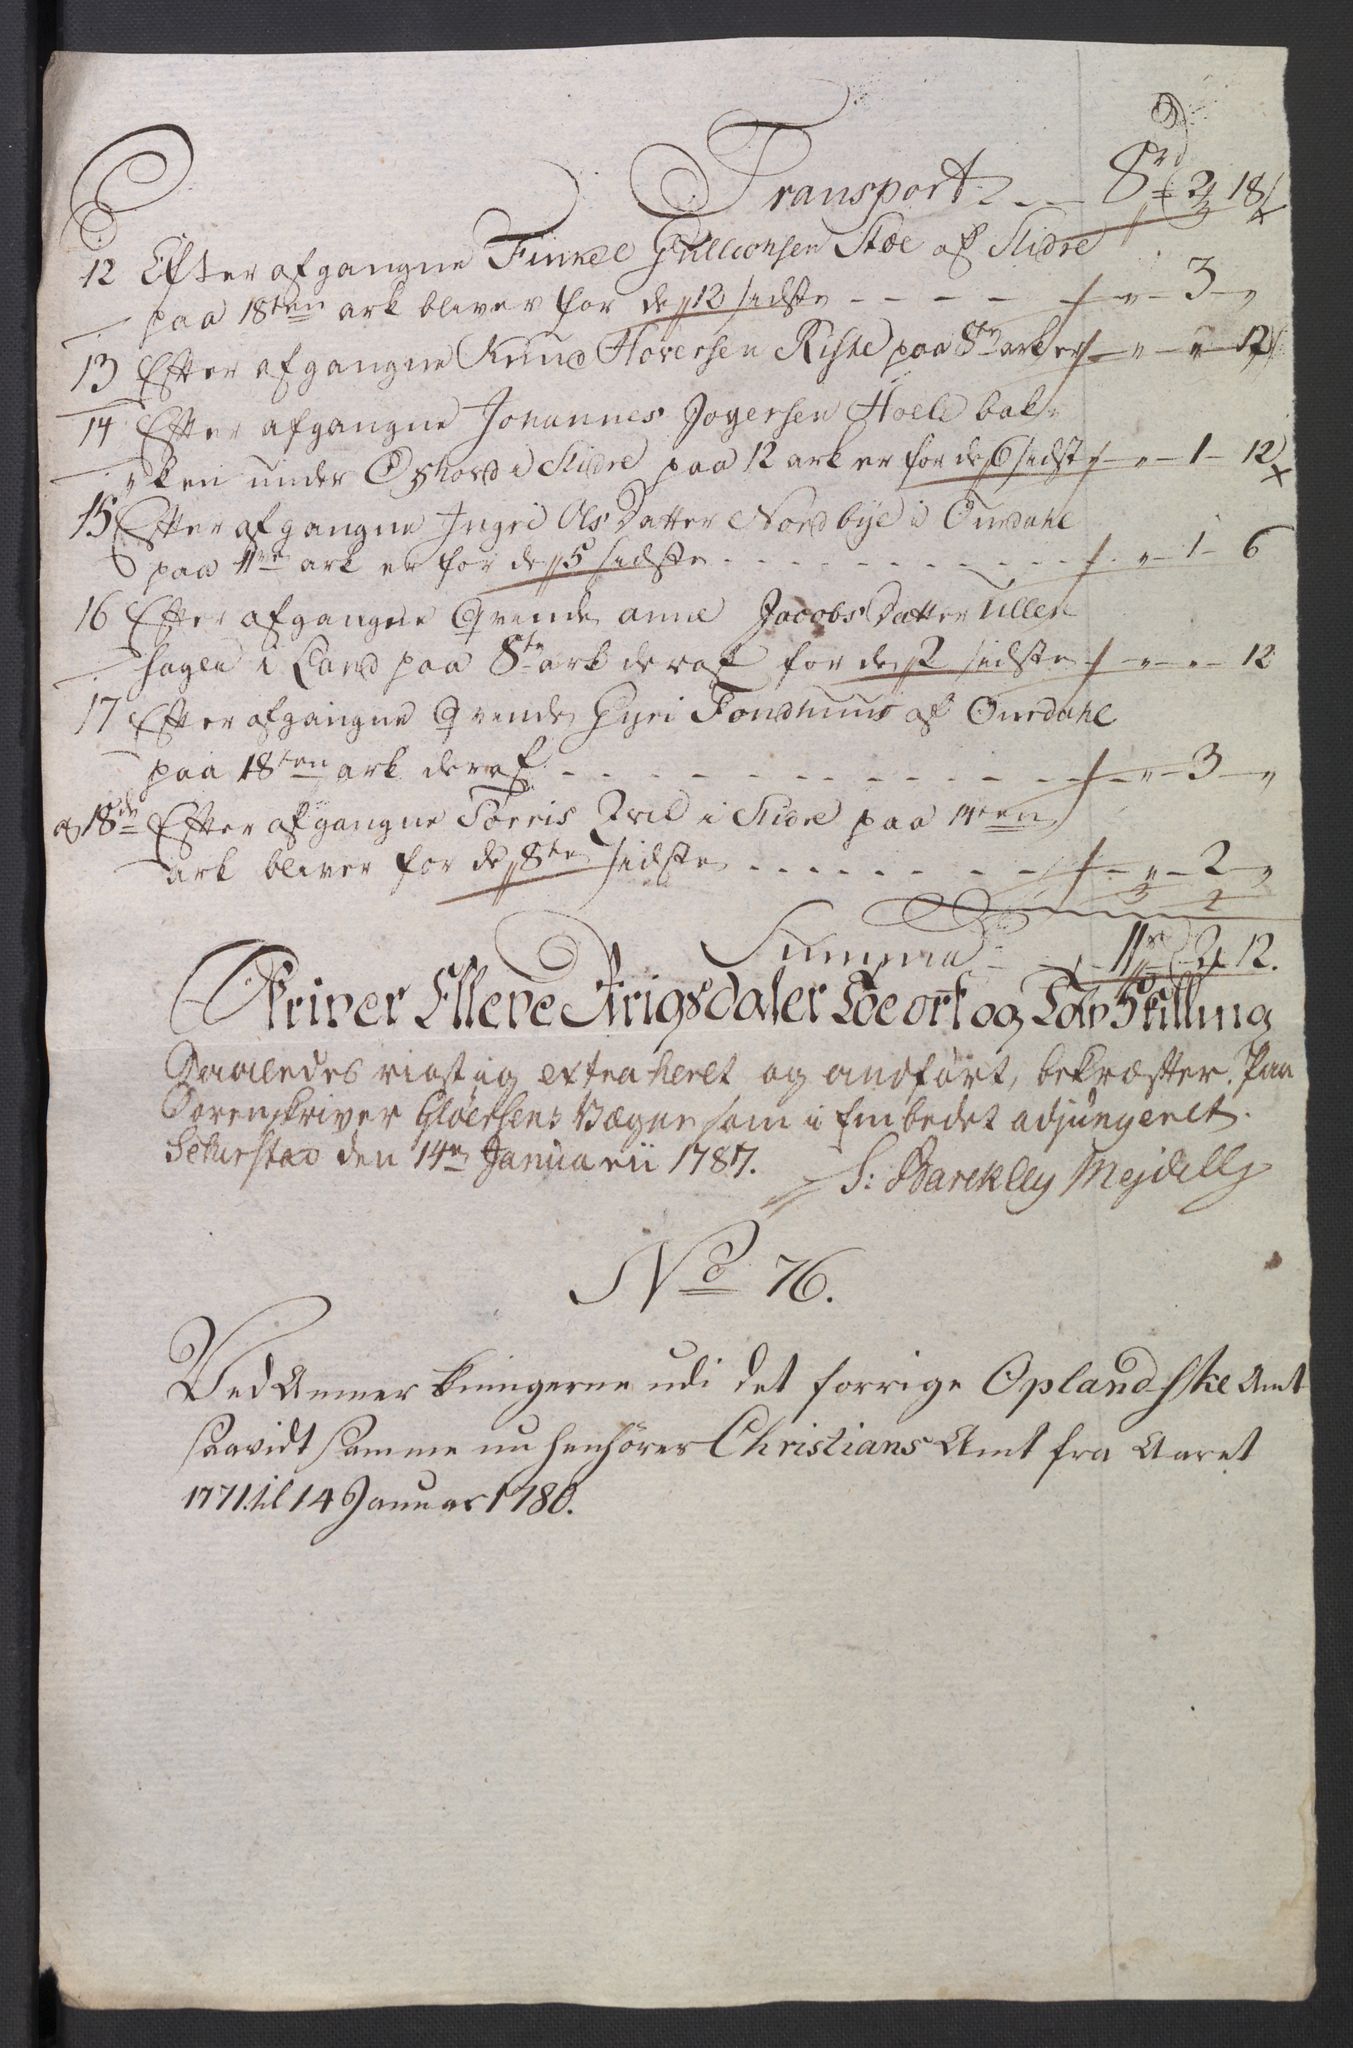 Transport - - 8rd 2 18
12 Efter afgangne Finkel Gulliconsen Stoe af Slidre
paa 18ten ark bliver for de 12 sidste - - - - - " - 3 - "
13 Efter afgangne Knud Hoversen Riste paa 8te ark er - " - " 12
14 Efter afgangne Johannes Jogersen Hoele bak-
ken under i Slidre paa 12 ark er for de 6 sidste - " - 1 - 12
15 Efter afgangne Ingri Ols Datter Nordbye i Ourdahl
paa 11ve ark er for de 5 sidste - - - - " - 1 - 6
16 Efter afgangne Qvinde anne Jacobs Datter Ullen
hagen i Land paa 8te ark deraf for de 2 sidste - " - " - 12
17 Efter afgangne Qvinde Gyri Fondhuus af Ourdahl
paa 18ten ark deraf - - - - - " - 3 - "
og 18de Efter afgangne Torris Qvil i Slidre paa 14ten
ark bliver for de 8te sidste - - - - " - 2 - "
3 2
Summa - 11rd 2 12.
Skriver Elleve Rigsdaler Toe ort og Tolv Skilling
Saaledes rigtig extraheret og andført, bekræfter. Paa
Sorenskriver Gløersens Vægne som i Embedet adjungeret.
den 14de Januarii 1787. S: Barckley Mejdell
No 76.
Ved Anmerkningerne udi det forrige Oplandske Amt
saavidt samme nu henhører Christians Amt fra Aaret
1771 til 14 Januar 1780.